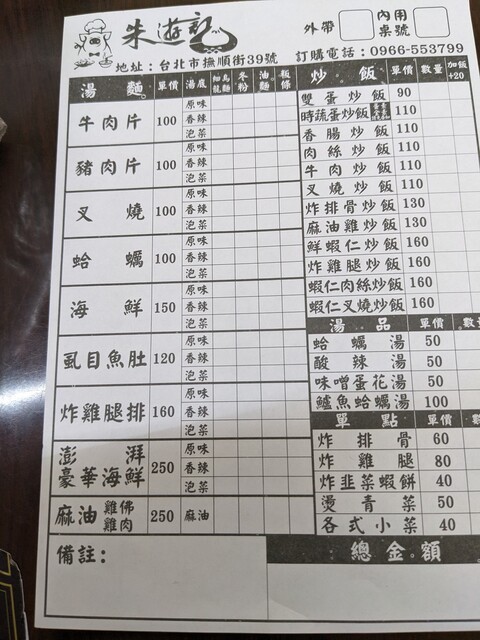 朱遊記
外帶
內用桌號
訂購電話：0966-553799
地址：台北市撫順街39號
湯麵 單價 湯底 細麵 烏龍 冬粉 油麵 粄條
牛肉片 100 原味 香辣 泡菜
豬肉片 100 原味 香辣 泡菜
叉燒 100 原味 香辣 泡菜
蛤蠣 100 原味 香辣 泡菜
海鮮 150 原味 香辣 泡菜
虱目魚肚 120 原味 香辣 泡菜
炸雞腿排 160 原味 香辣 泡菜
澎湃豪華海鮮 250 原味 香辣 泡菜
麻油雞佛雞肉 250 麻油
備註：
炒飯 單價 數量 加飯+20
雙蛋炒飯 90
時蔬蛋炒飯 110
香腸炒飯 110
肉絲炒飯 110
牛肉炒飯 110
叉燒炒飯 110
炸排骨炒飯 130
麻油雞炒飯 130
鮮蝦仁炒飯 160
炸雞腿炒飯 160
蝦仁肉絲炒飯 160
蝦仁叉燒炒飯 160
湯品 單價
蛤蠣湯 50
酸辣湯 50
味噌蛋花湯 50
鱸魚蛤蠣湯 100
單點 單價 數量
炸排骨 60
炸雞腿 80
炸韭菜蝦餅 40
燙青菜 50
各式小菜 40
總金額